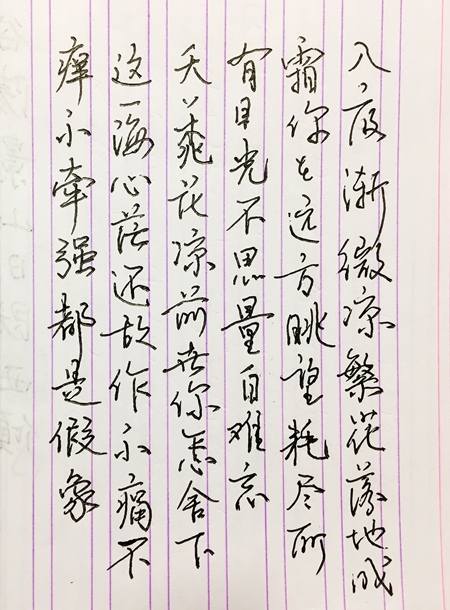 入夜渐微凉繁花落地成
霜你在远方眺望耗尽所
有目光不思量自难忘
夭々桃花凉前世你怎舍下
这一海心茫还故作不痛不
痒不牵强都是假象